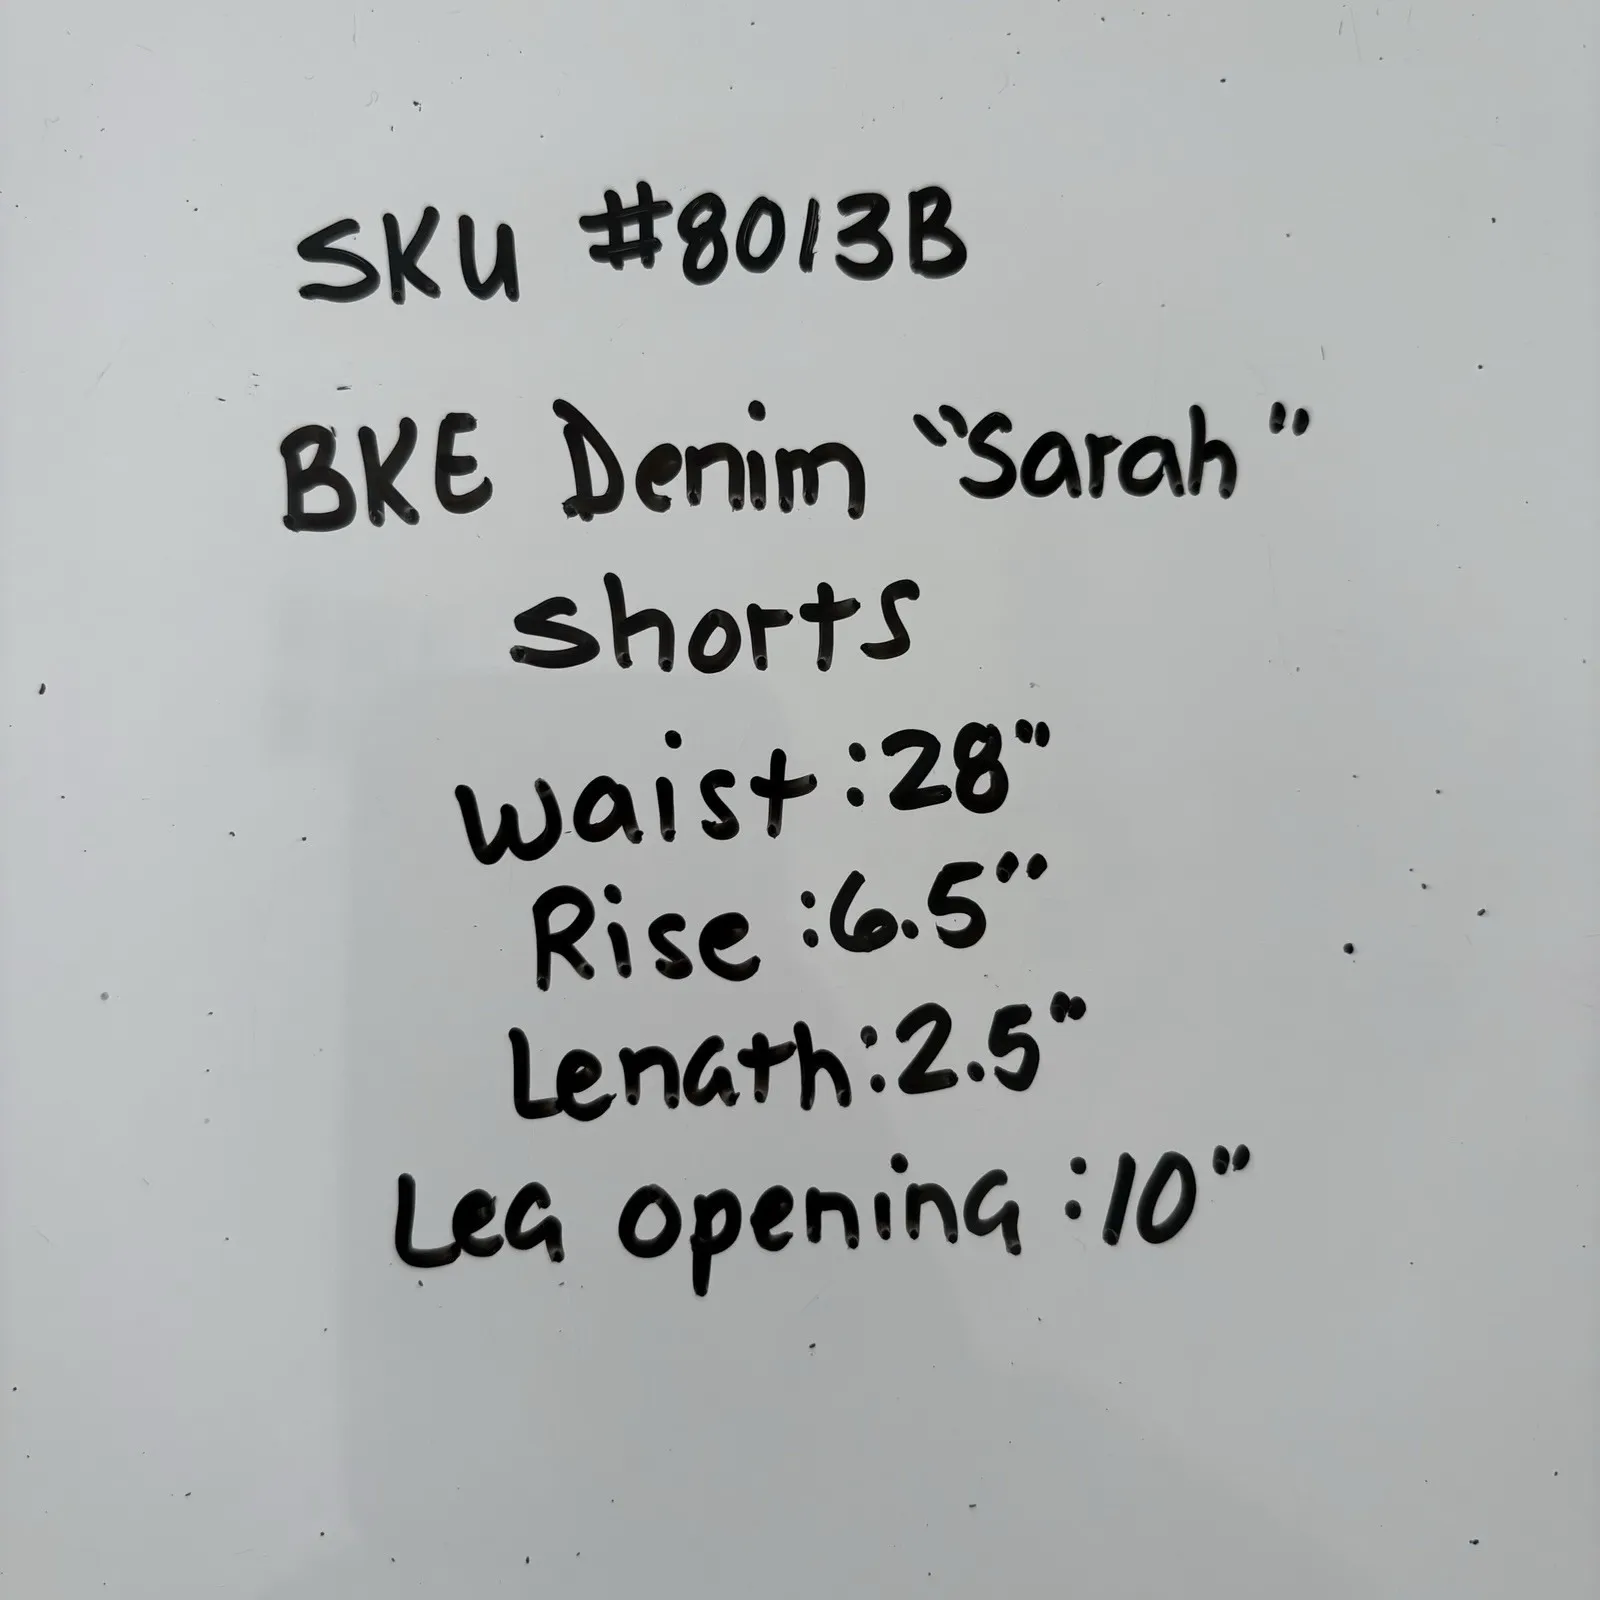 SKU #8013B
BKE Denim "Sarah"
shorts
Waist :28"
Rise :6.5"
Length:2.5"
Leg opening :10"